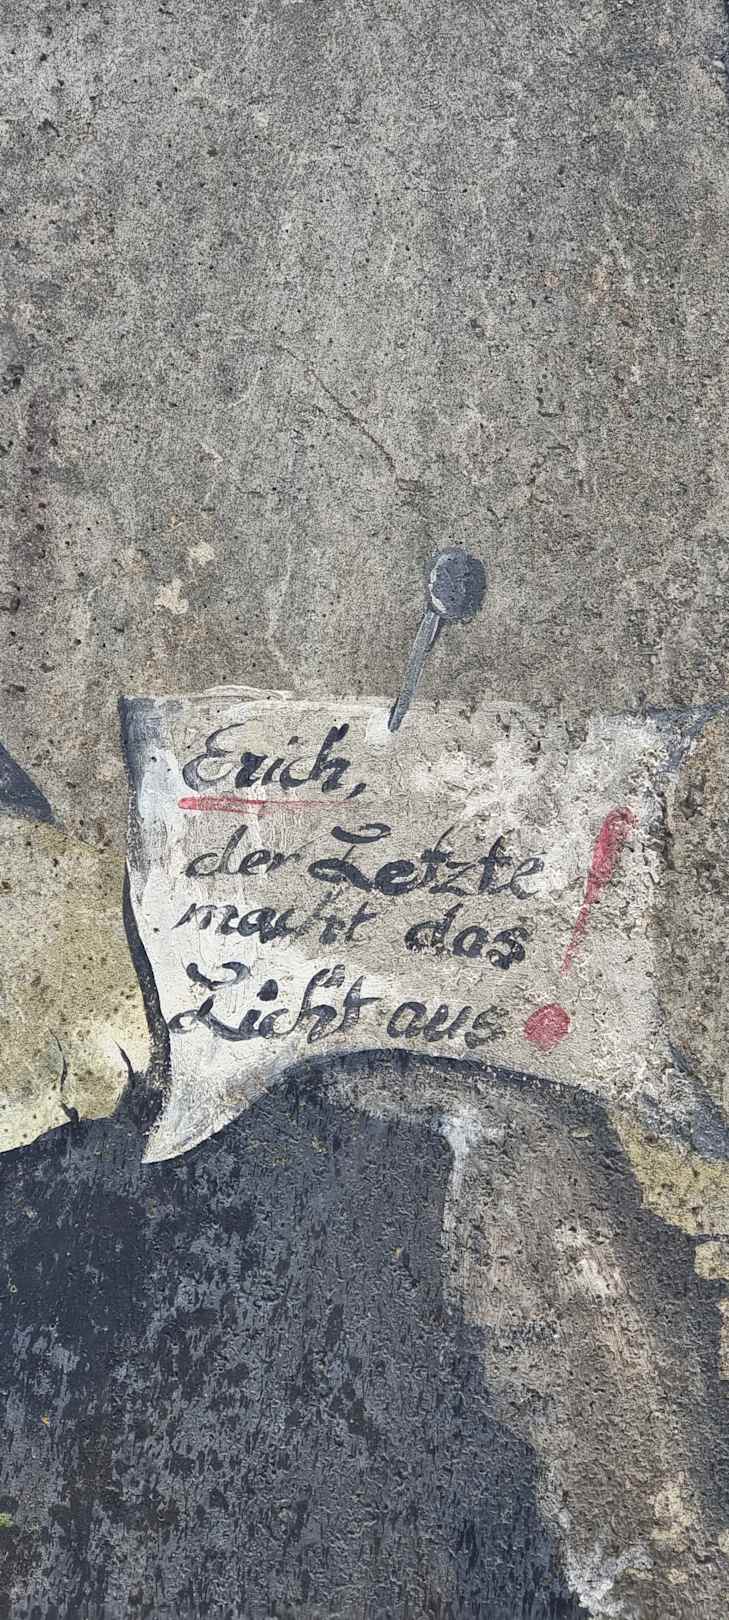 Erich,
der Letzte
macht das
Licht aus!